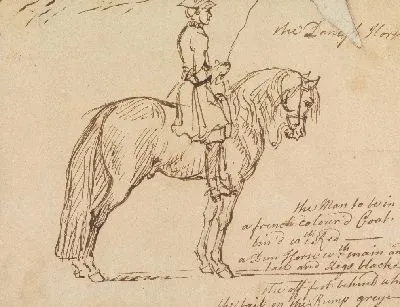 the Hors
the Man to be in
a french colour'd Coat
lin'd wth Red
a Dun Horse wth main an
tale and legs blacke
the off foot behind whi
the tail on the Rump grey